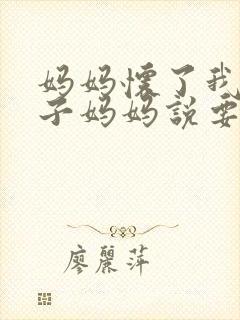 妈妈懷了我
子妈妈説要
廖麗萍